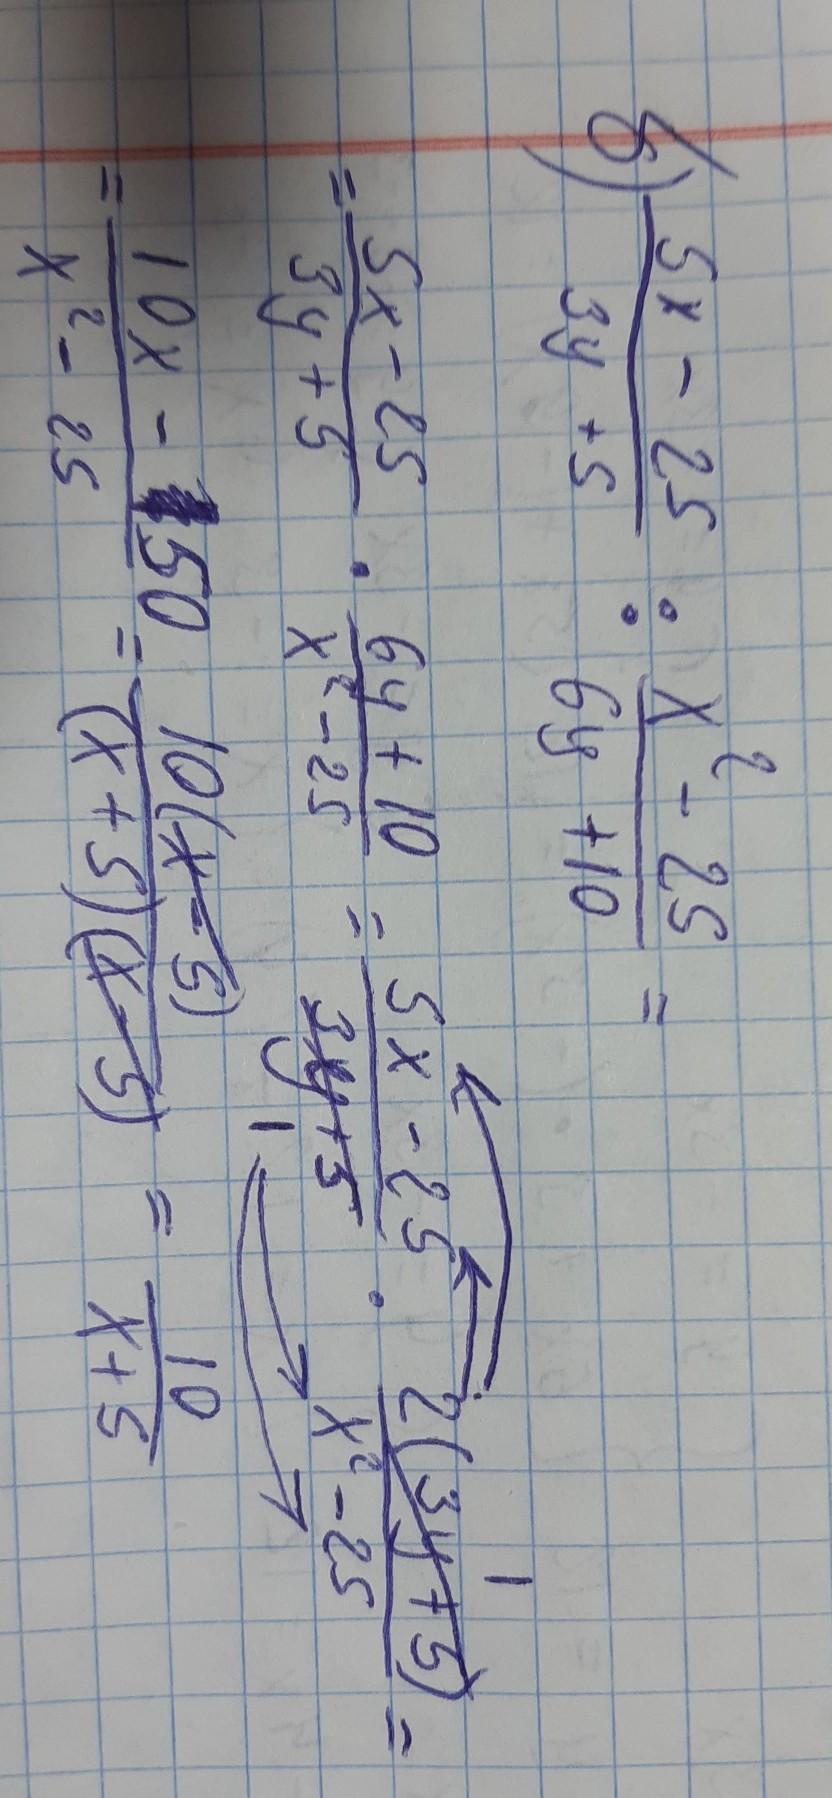 б) \frac{5x - 25}{3y + 5} : \frac{x^2 - 25}{6y + 10} =
= \frac{5x - 25}{3y + 5} \cdot \frac{6y + 10}{x^2 - 25} = \frac{5x - 25}{3y + 5 \ 1} \cdot \frac{2(3y + 5) \ 1}{x^2 - 25} =
= \frac{10x - 50}{x^2 - 25} = \frac{10(x - 5)}{(x + 5)(x - 5)} = \frac{10}{x + 5}